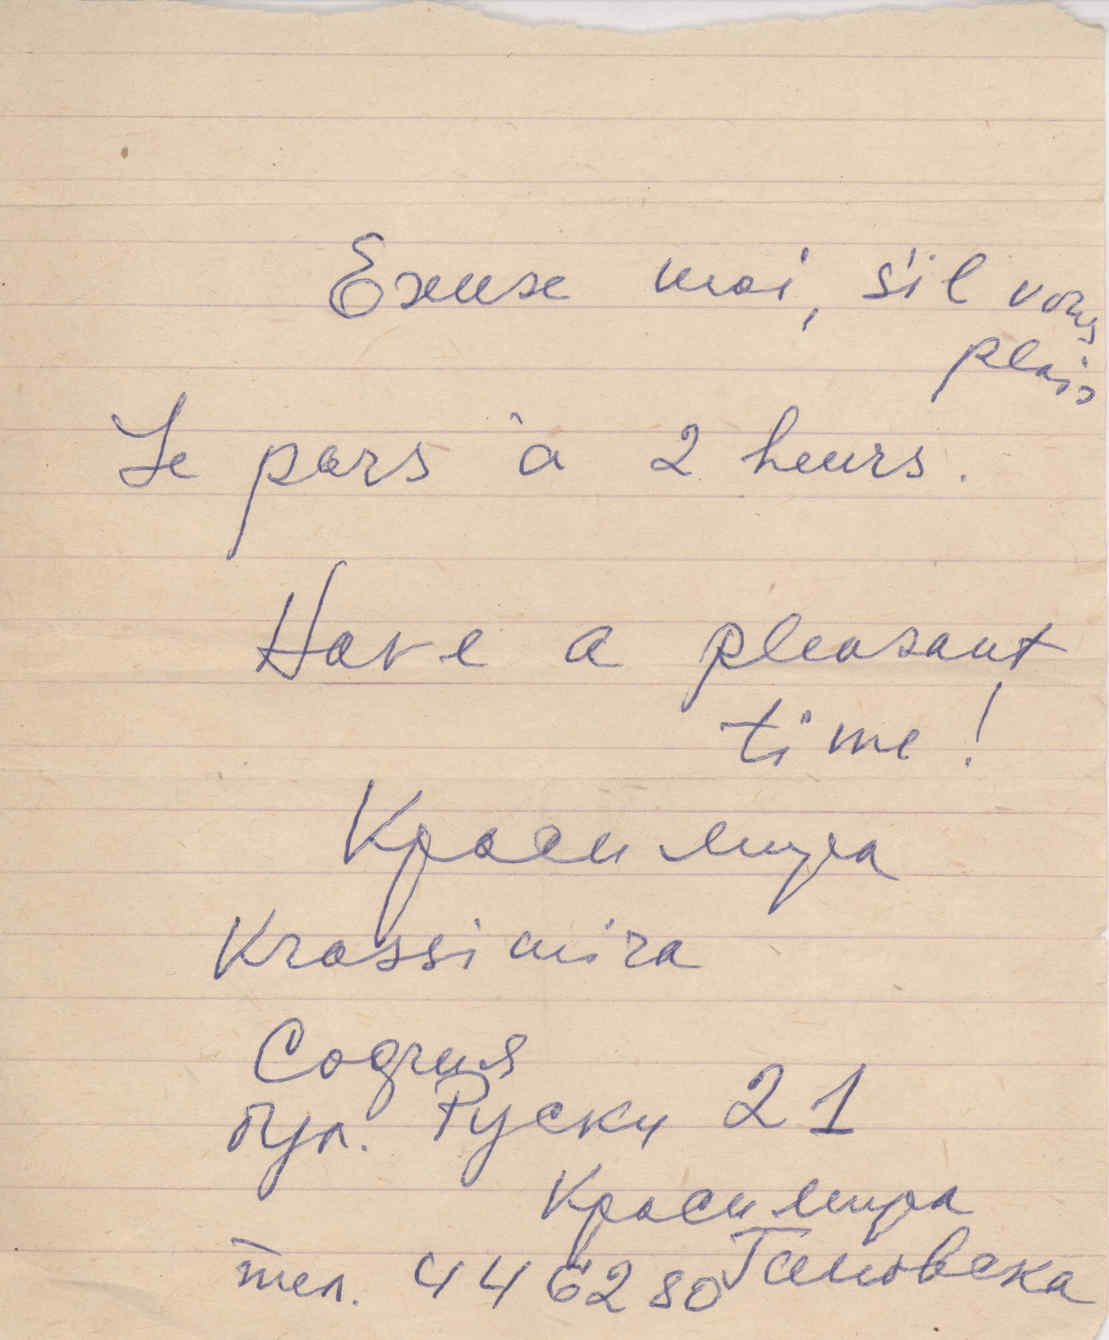 Exuse moi, s'il vous
plais
Je pars à 2 heurs.
Have a pleasant
time!
Красимира
Krassimira
София
бул. Руски 21
Красимира
тел. 446280